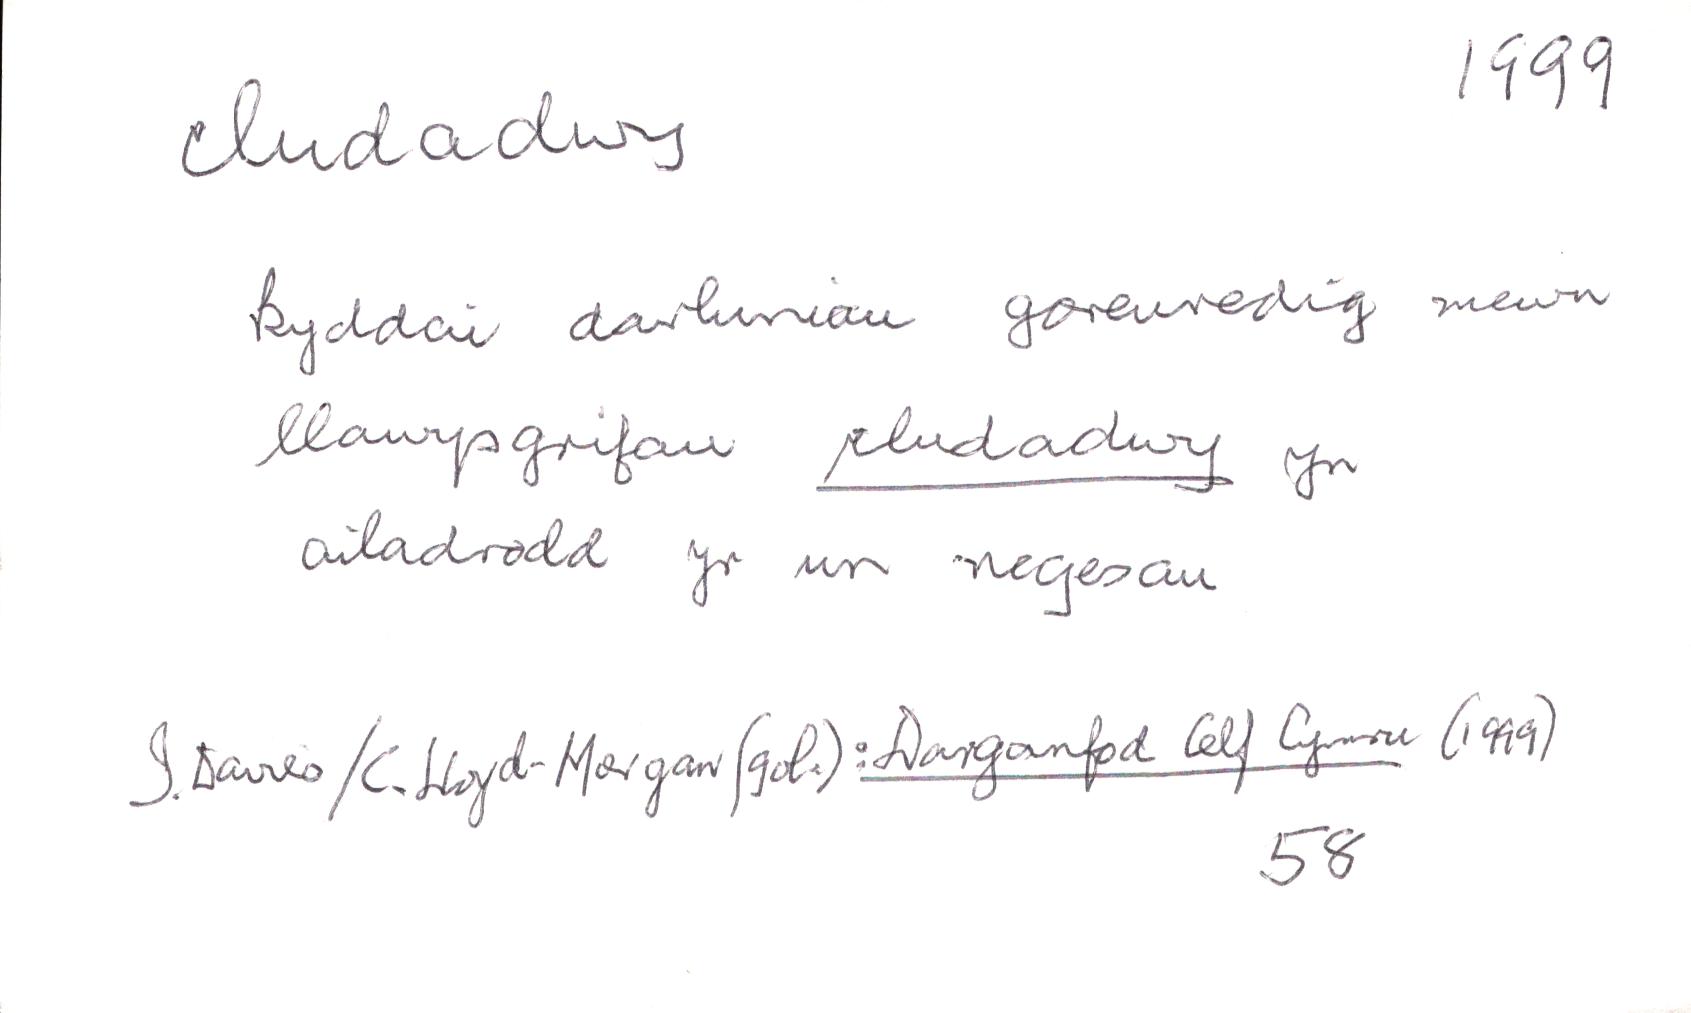 1999
cludadwy
byddai darluniau goreuredig mewn
llawysgrifau cludadwy yn
ailadrodd yr un negesau
I. Davies/C. Lloyd-Morgan (gol.): Darganfod Celf Cymru (1999)
58